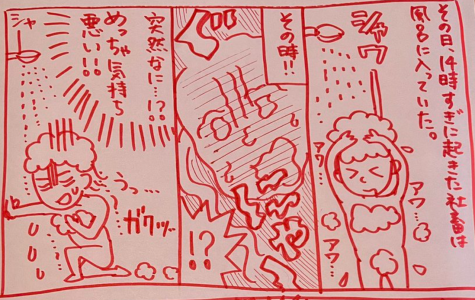 その日、14時すぎに起きた社畜は
風呂に入っていた。
シャワー
アワ…
アワ…
アワ…
その時!!
ぐ
にゃ
!?
突然なに…!?
めっちゃ気持ち
悪い!!
シャ
うっ…
ガクッ…